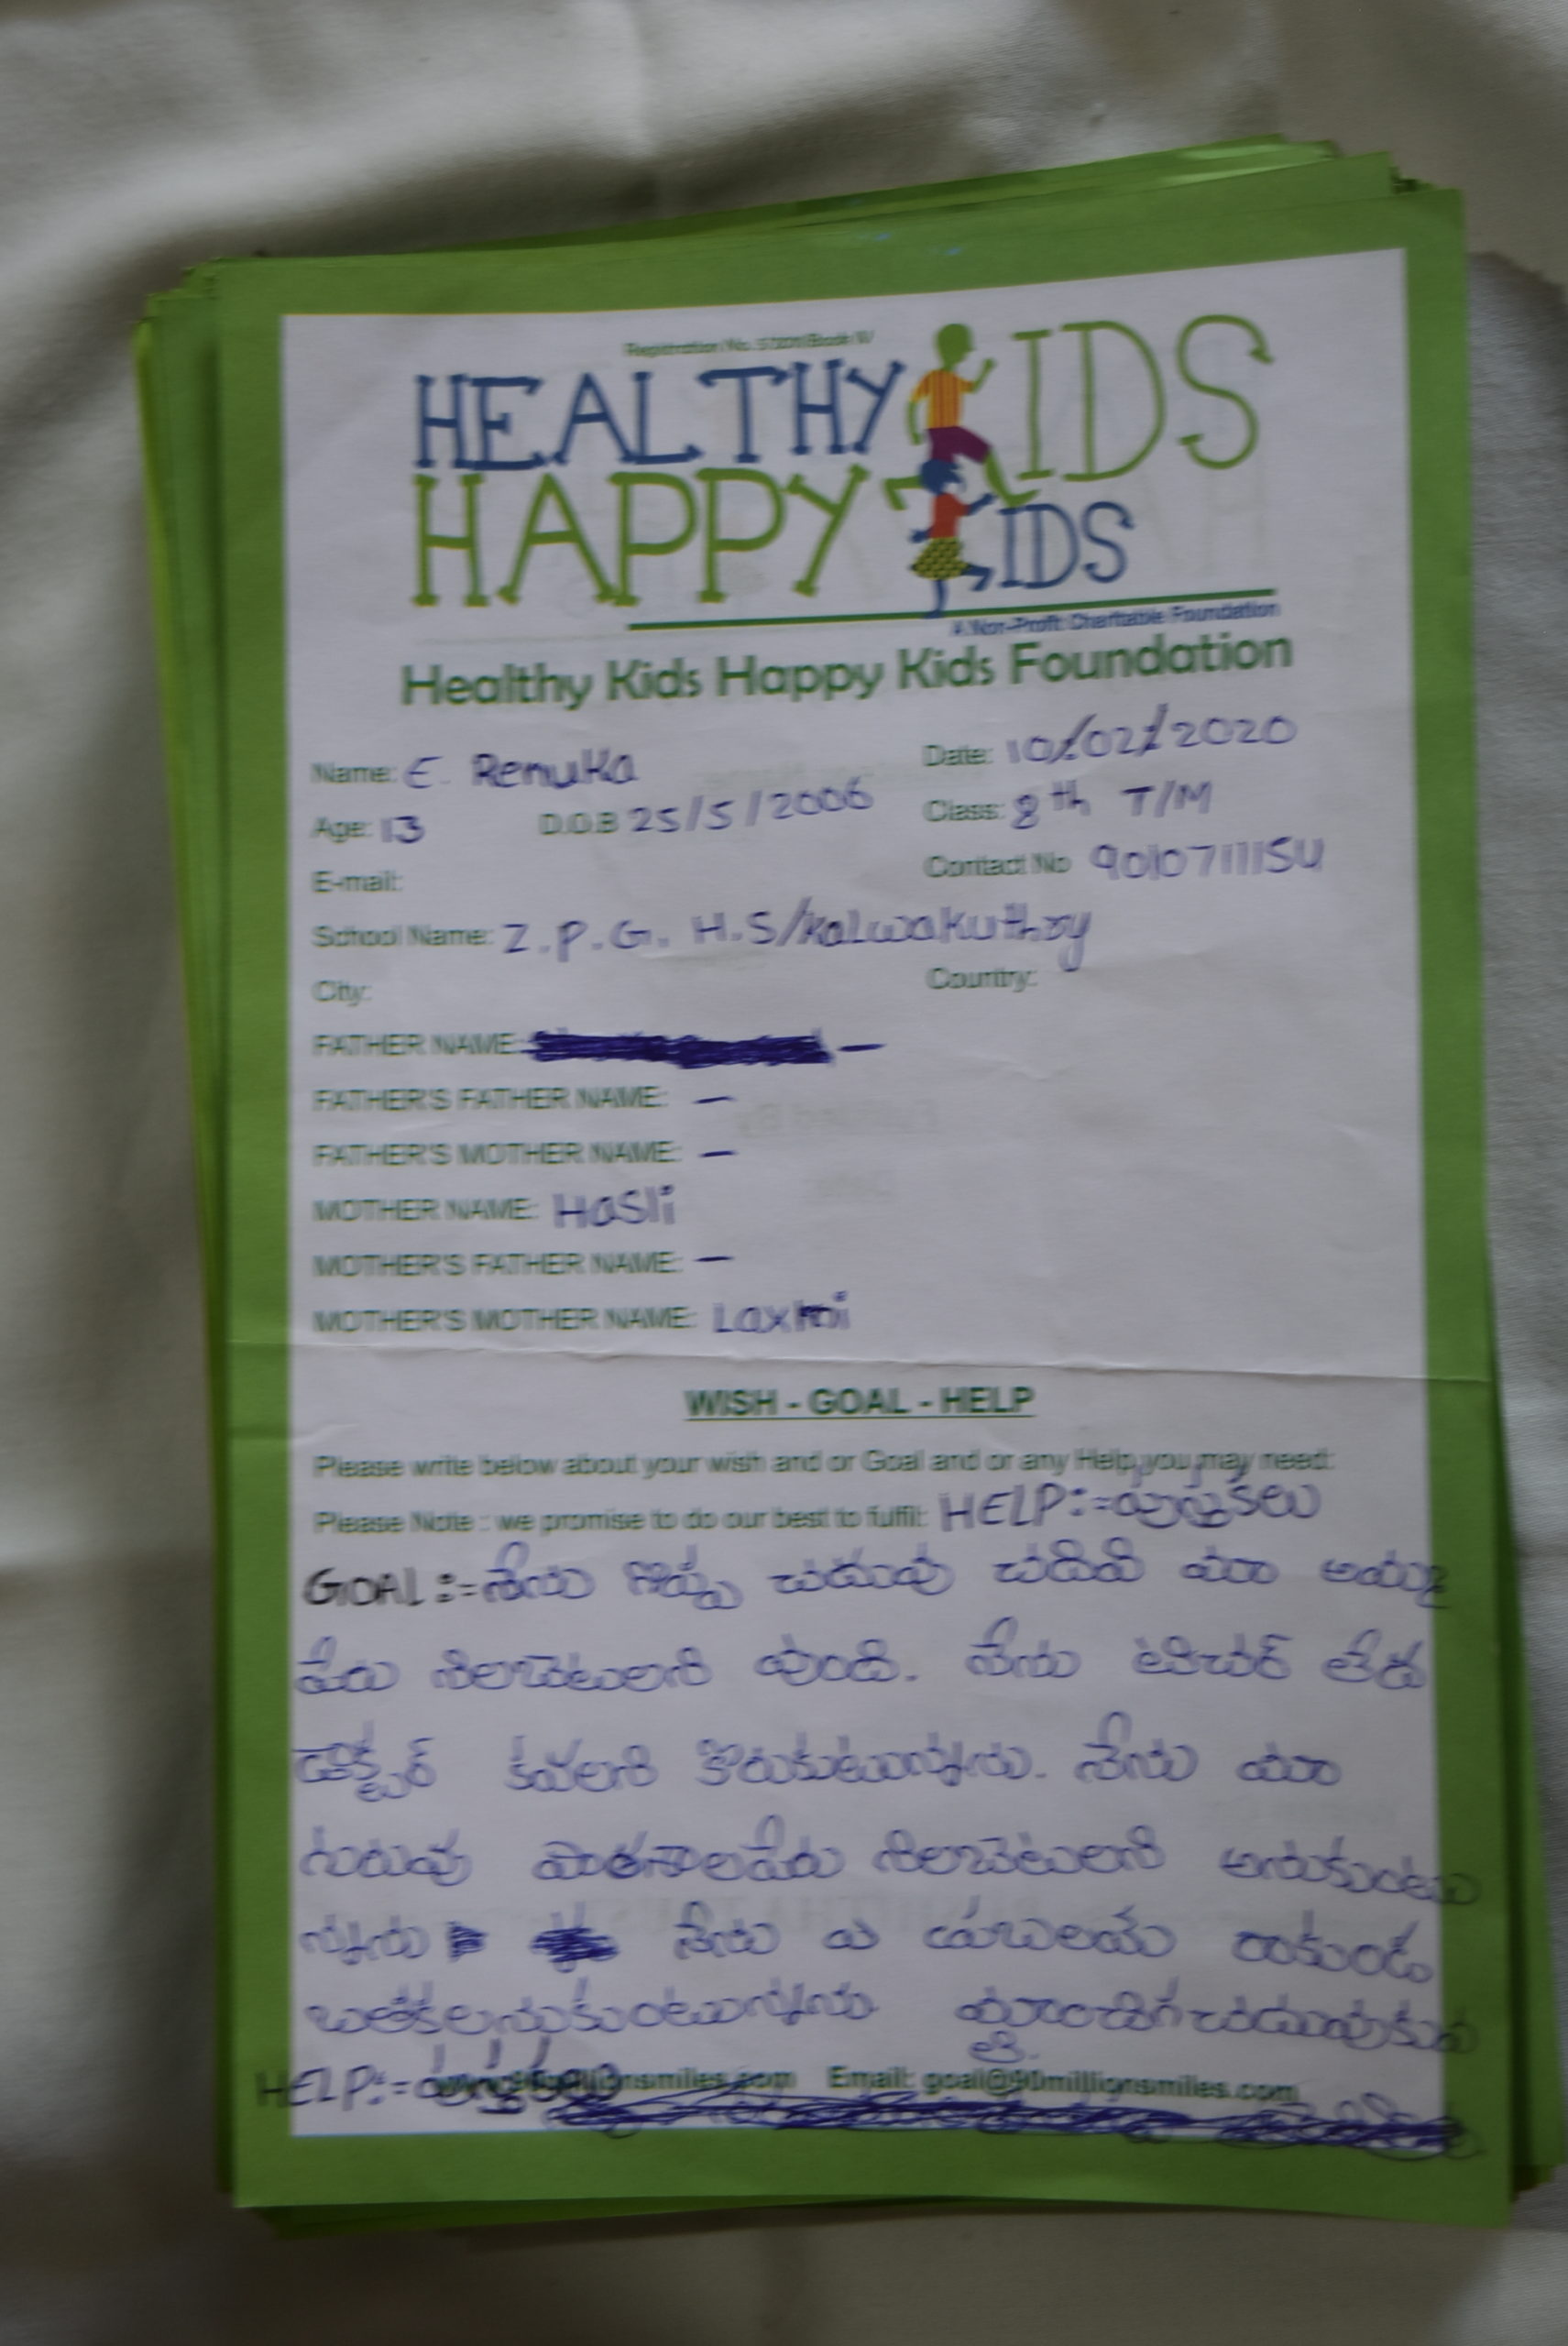 HEALTHY KIDS
HAPPY KIDS
A Non-Profit Charitable Foundation
Healthy Kids Happy Kids Foundation
Name: E. Renuka Date: 10/02/2020
Age: 13 D.O.B 25/5/2006 Class: 8th T/M
E-mail: Contact No
School Name: Z.P.G. H.S/Kalwakuthry
City: Country:
FATHER NAME: -
FATHER'S FATHER NAME: -
FATHER'S MOTHER NAME: -
MOTHER NAME: Hasli
MOTHER'S FATHER NAME: -
MOTHER'S MOTHER NAME: Laxmi
WISH - GOAL - HELP
Please write below about your wish and or Goal and or any Help you may need:
Please Note : we promise to do our best to fulfil: HELP:=పుస్తకలు
GOAL:=నేను గొప్ప చదువు చదివి మా అమ్మ
పేరు నిలబెటులని వుంది. నేను టిచర్ లేద
డాక్టర్ కవలని కొరుకుటున్నాను. నేను మా
గురువు పాఠశాలపేరు నిలబెటులని అనుకుంటు
న్నాను నేను ఏ రాకుండ
బతకలనుకుంటున్నాను
HELP:=పుస్తకలు Email: goal@90millionsmiles.com